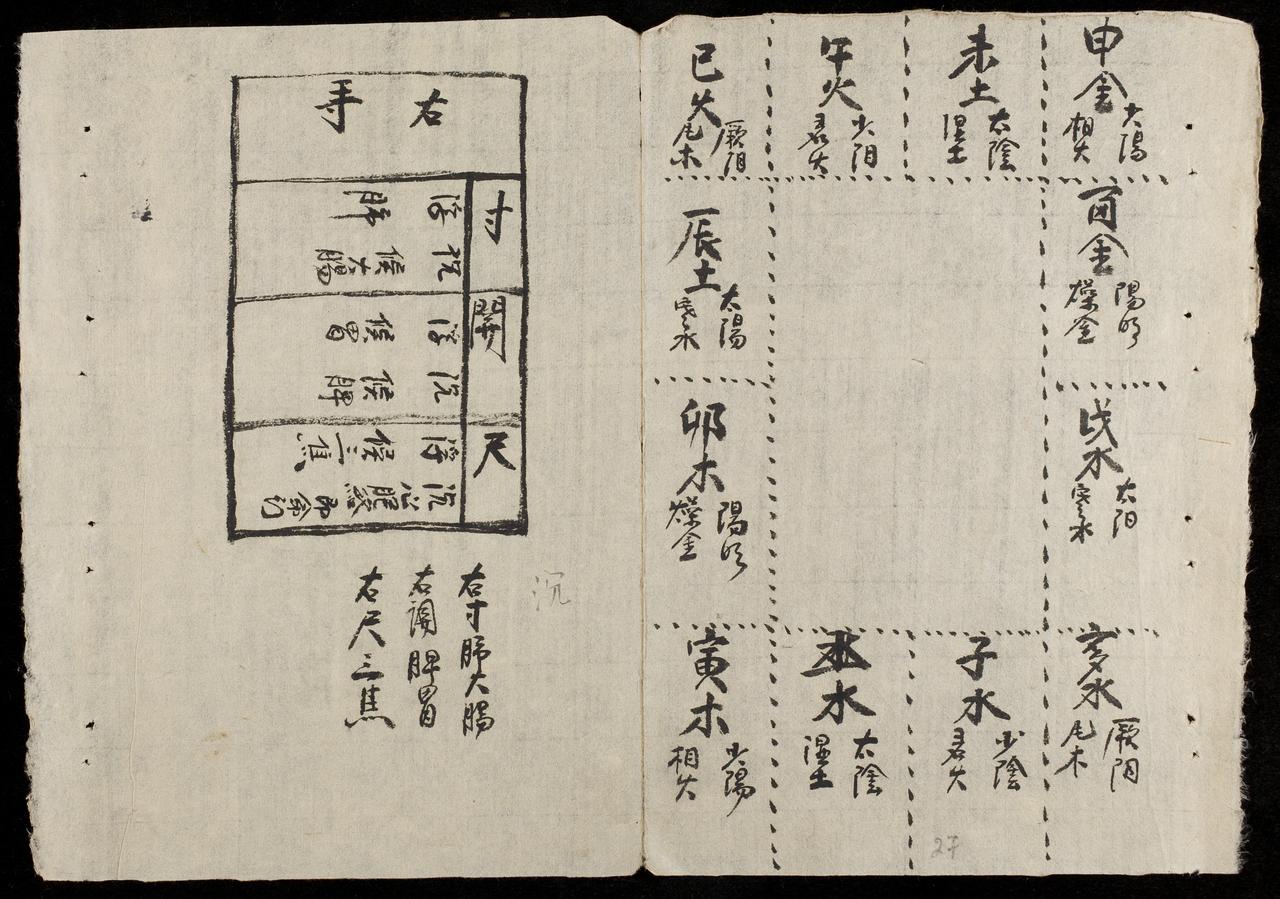 申金
太陽
相火
未土
太陰
湿土
午火
少阴
君火
巳火
厥阴
木
酉金
陽明
燥金
辰土
太陽
寒水
戌水
太阳
寒水
卯木
陽明
燥金
亥水
厥阴
木
子水
少陰
君火
丑水
太陰
湿土
寅木
少陽
相火
27
右手
寸
浮 肺
沉候大腸
關
浮候胃
沉候脾
尺
浮候三焦
沉心
沉
右寸肺大腸
右関脾胃
右尺三焦